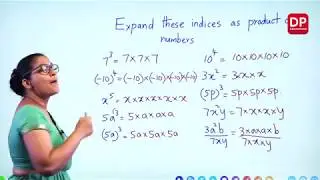 DP
Expand these indices as product
numbers
7³ = 7×7×7
(-10)⁴ = (-10)×(-10)×(-10)×(-10)
x⁵ = x×x×x×x×x
5a³ = 5×a×a×a
(5a)³ = 5a×5a×5a
10⁴ = 10×10×10×10
3x² = 3×x×x
(5p)³ = 5p×5p×5p
7x²y = 7×x×x×y
3a²b/7xy = 3×a×a×b/7×x×y